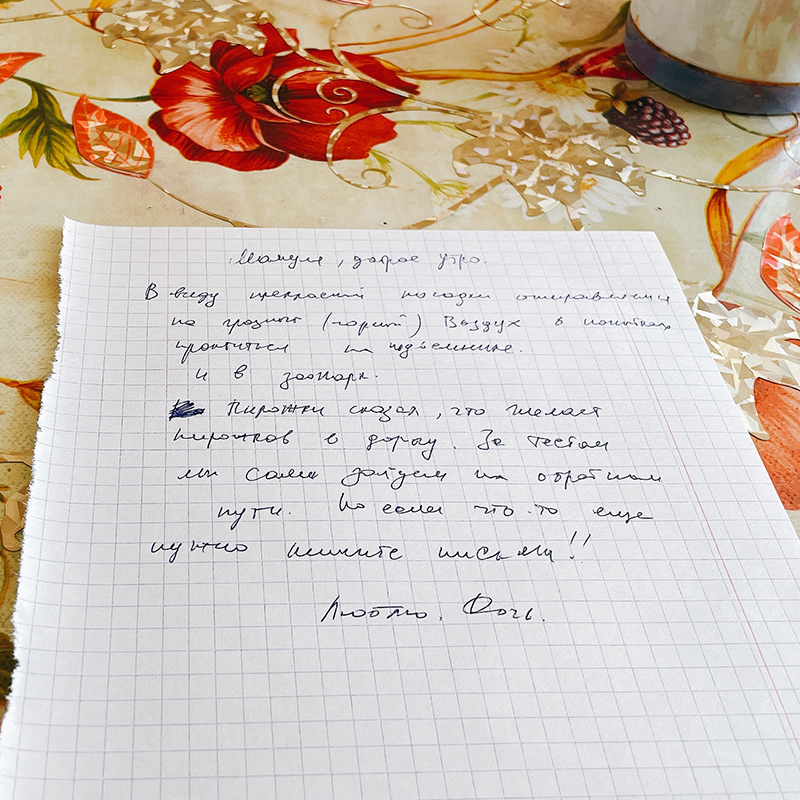 Мамуля, доброе утро.
В виду прекрасной погоды отправляемся
на грозный (горный) Воздух в попытках
прокатиться на подъемнике.
и в зоопарк.
Пирожки сказал, что желает
пирожков в дорогу. За тестом
мы сами зайдем на обратном
пути. Но если что-то еще
нужно пишите письма!!
Люблю. Дочь.